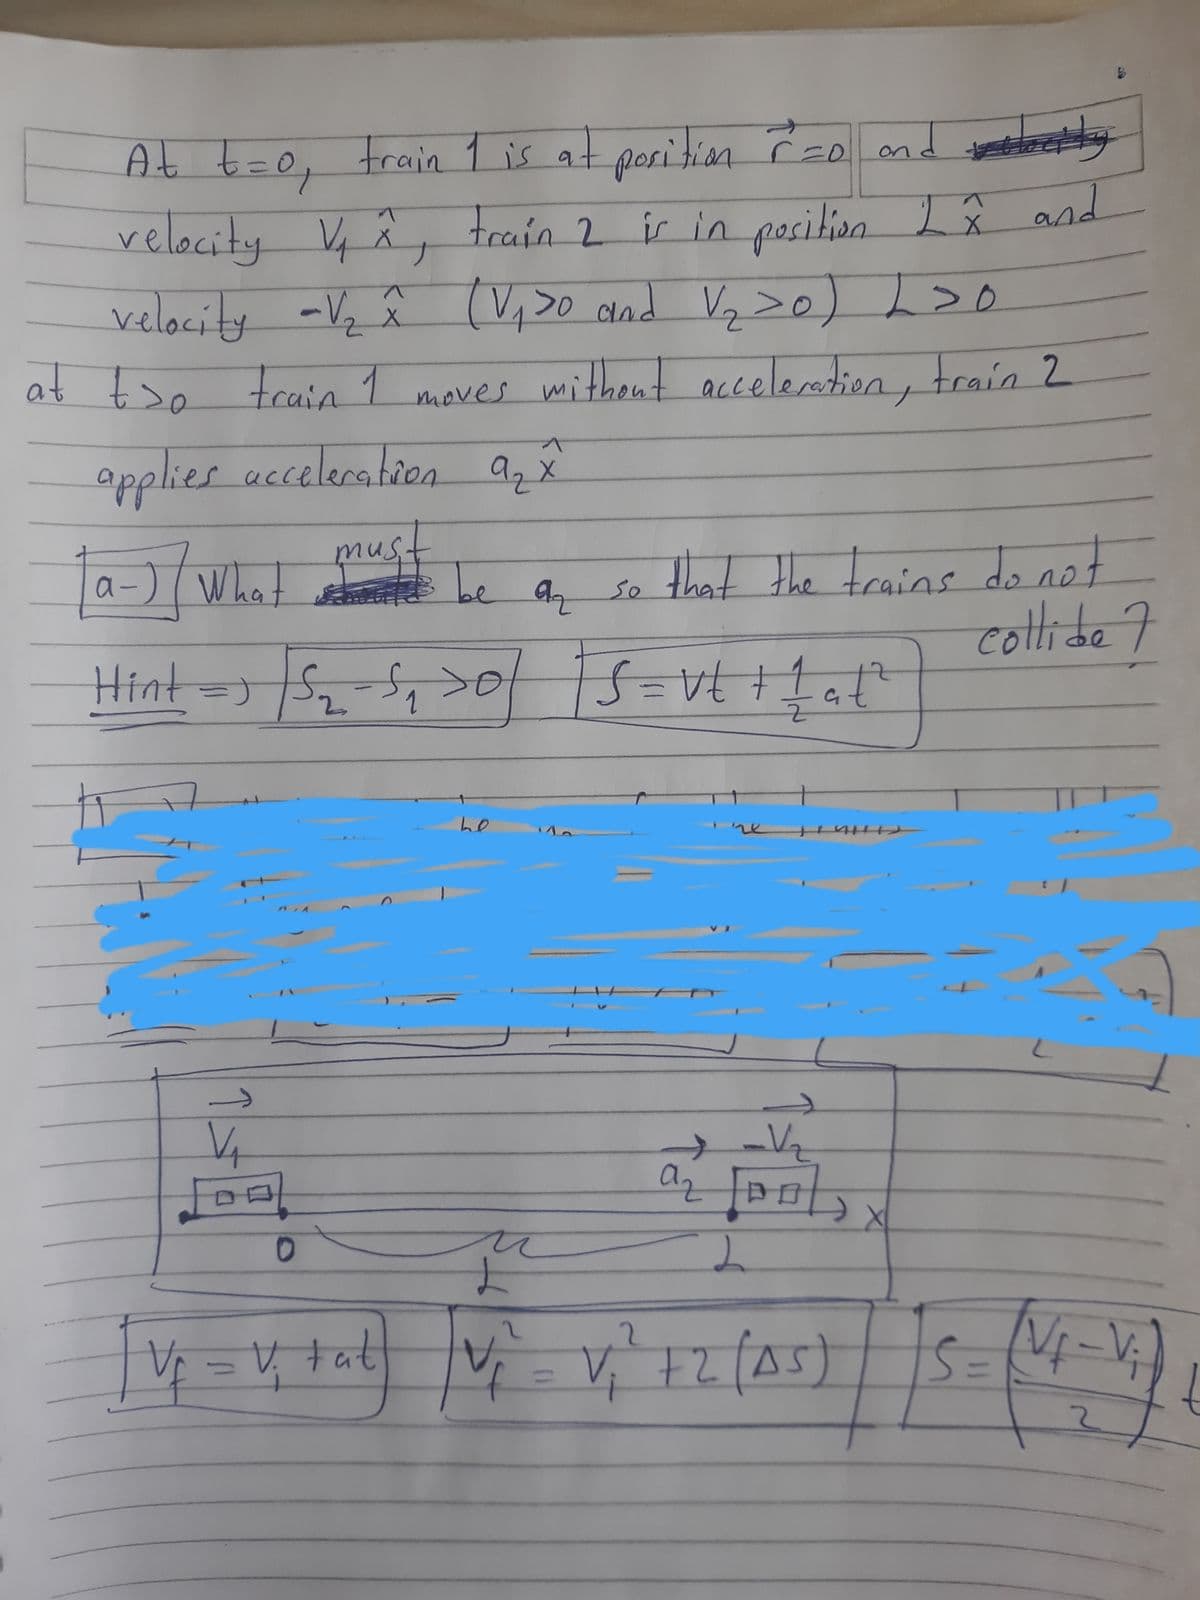 At t=0, train 1 is at position r⃗=0 and
velocity V₁ x̂, train 2 is in position L x̂ and
velocity -V₂ x̂ (V₁>0 and V₂>0) L>0
at t>0 train 1 moves without acceleration, train 2
applies acceleration a₂ x̂
a-) What must be a₂ so that the trains do not
collide?
Hint => S₂-S₁>0 S=vt+½at²
V₁⃗
a₂⃗ -V₂⃗
x
0 L
L
V_f = V_i + at V_f² = V_i² + 2(ΔS) S = ((V_f - V_i)/2) t